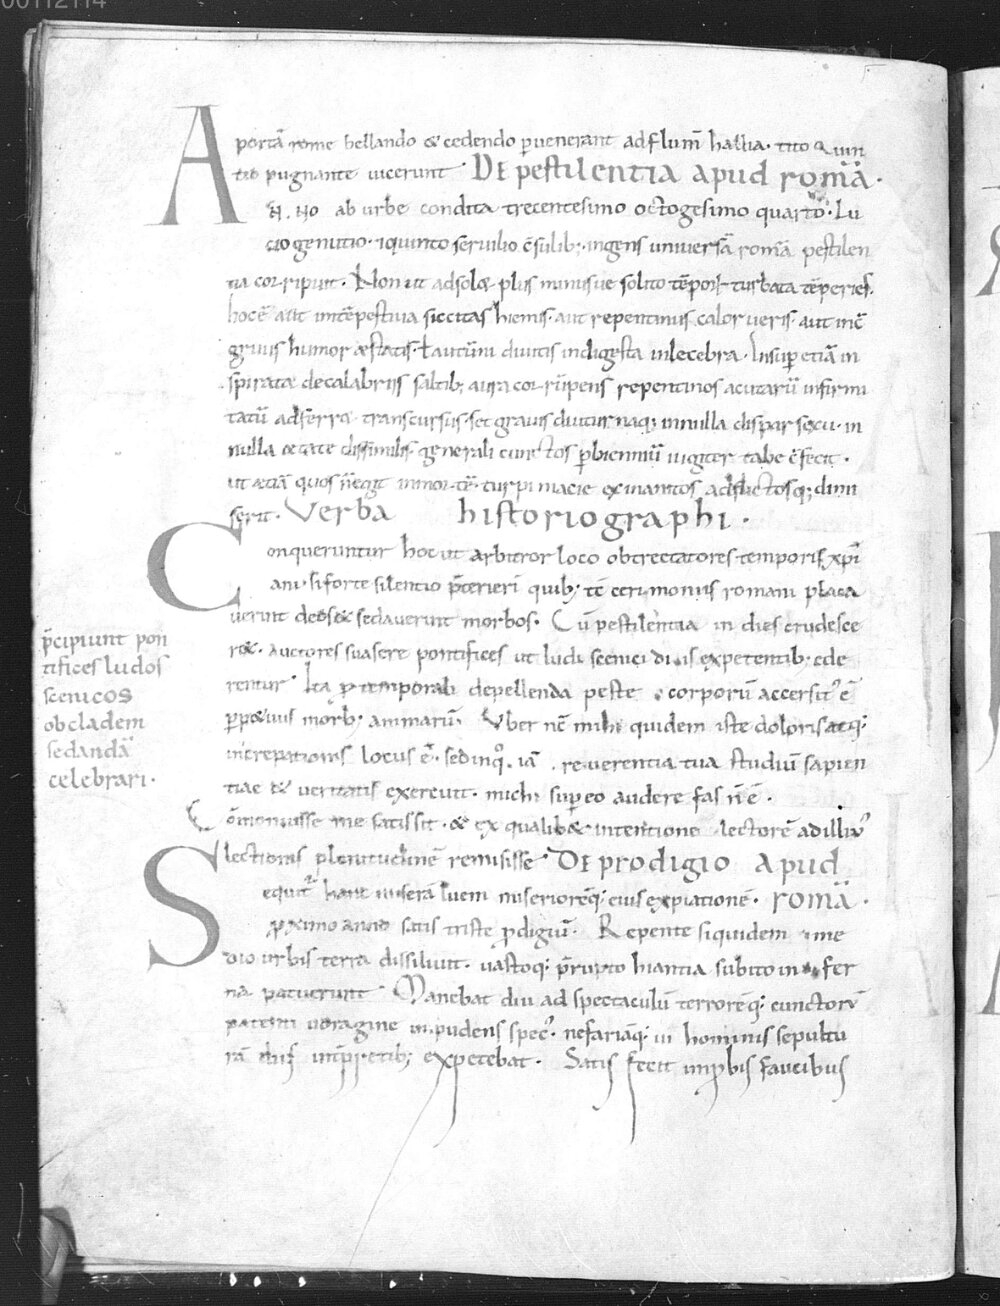 00112114
A portā rome bellando & cedendo ꝑuenerant adflum̄ hallia· tito quin
tio pugnante uicerunt· DE pestilentia apud romā·
AN.NO ab urbe condita trecentesimo octogesimo quarto· Lu
cio genutio· &quinto seruilio c̄sulib; ingens uniuersā romā pestilen
tia corripuit· Non ut adsol& plus minusue solito tēpor turbata tēperies·
hoc ē aut intēpestiua siccitas hiemis· aut repentinus calor ueris· aut inc̄
gruus humor æstatis· ł autūni diuitis indigesta inlecebra· Insuꝑ etiā in
spirata decalabriis saltib; aura corrūpens repentinos acutarū infirmi
tatū adferre transcursus· set grauis diuturnaq; innulla dispar sexu· in
nulla &tate dissimilis· generali cunctos ꝑbienniū iugiter tabe c̄fecit·
ut &iā quos n̄egit inmortē· turpi macie exinanitos adflictosq; dimi
serit· Verba historiographi·
Conqueruntur hoc ut arbitror loco obtrectatores temporis xp̄i
ani· si forte silentio p̄terieri quib; tc̄ cerimoniis romani placa
uerint deos& sedauerint morbos· Cū pestilentia in dies crudesce
r&· auctores suasere pontifices ut ludi scenici diis expetentib; ede
rentur· Ita ꝓ temporali depellenda peste corporū accersit' ē
ꝑp&uus morb; animarū· Vber nc̄ mihi quidem iste doloris atq;
increpationis locus ē· sed inq̊ iā reuerentia tua studiū sapien
tiae & ueritatis exercuit· michi suꝑ eo audere fas n̄ ē·
Cōmonuisse me satis sit· & ex qualib& intentione lectorē ad illiꝰ
lectionis plenitudinē remisisse· DE prodigio apud
Sequit' hanc miserā luem miseriorēq; eius expiationē· romā·
ꝓximo anno satis triste ꝓdigiū· Repente siquidem &me
dio urbis terra dissiluit· uastoq; p̄rupto hiantia subito in fer
na patuerunt· Manebat diu ad spectaculū terrorēq; cunctorū
patenti uoragine inpudens spec' nefariāq; ui hominis sepultu
rā diis int̄ꝑretib; expetebat· Satis fecit inꝓbis faucibus
p̄cipiunt pon
tifices ludos
scenicos
ob cladem
sedandā
celebrari·